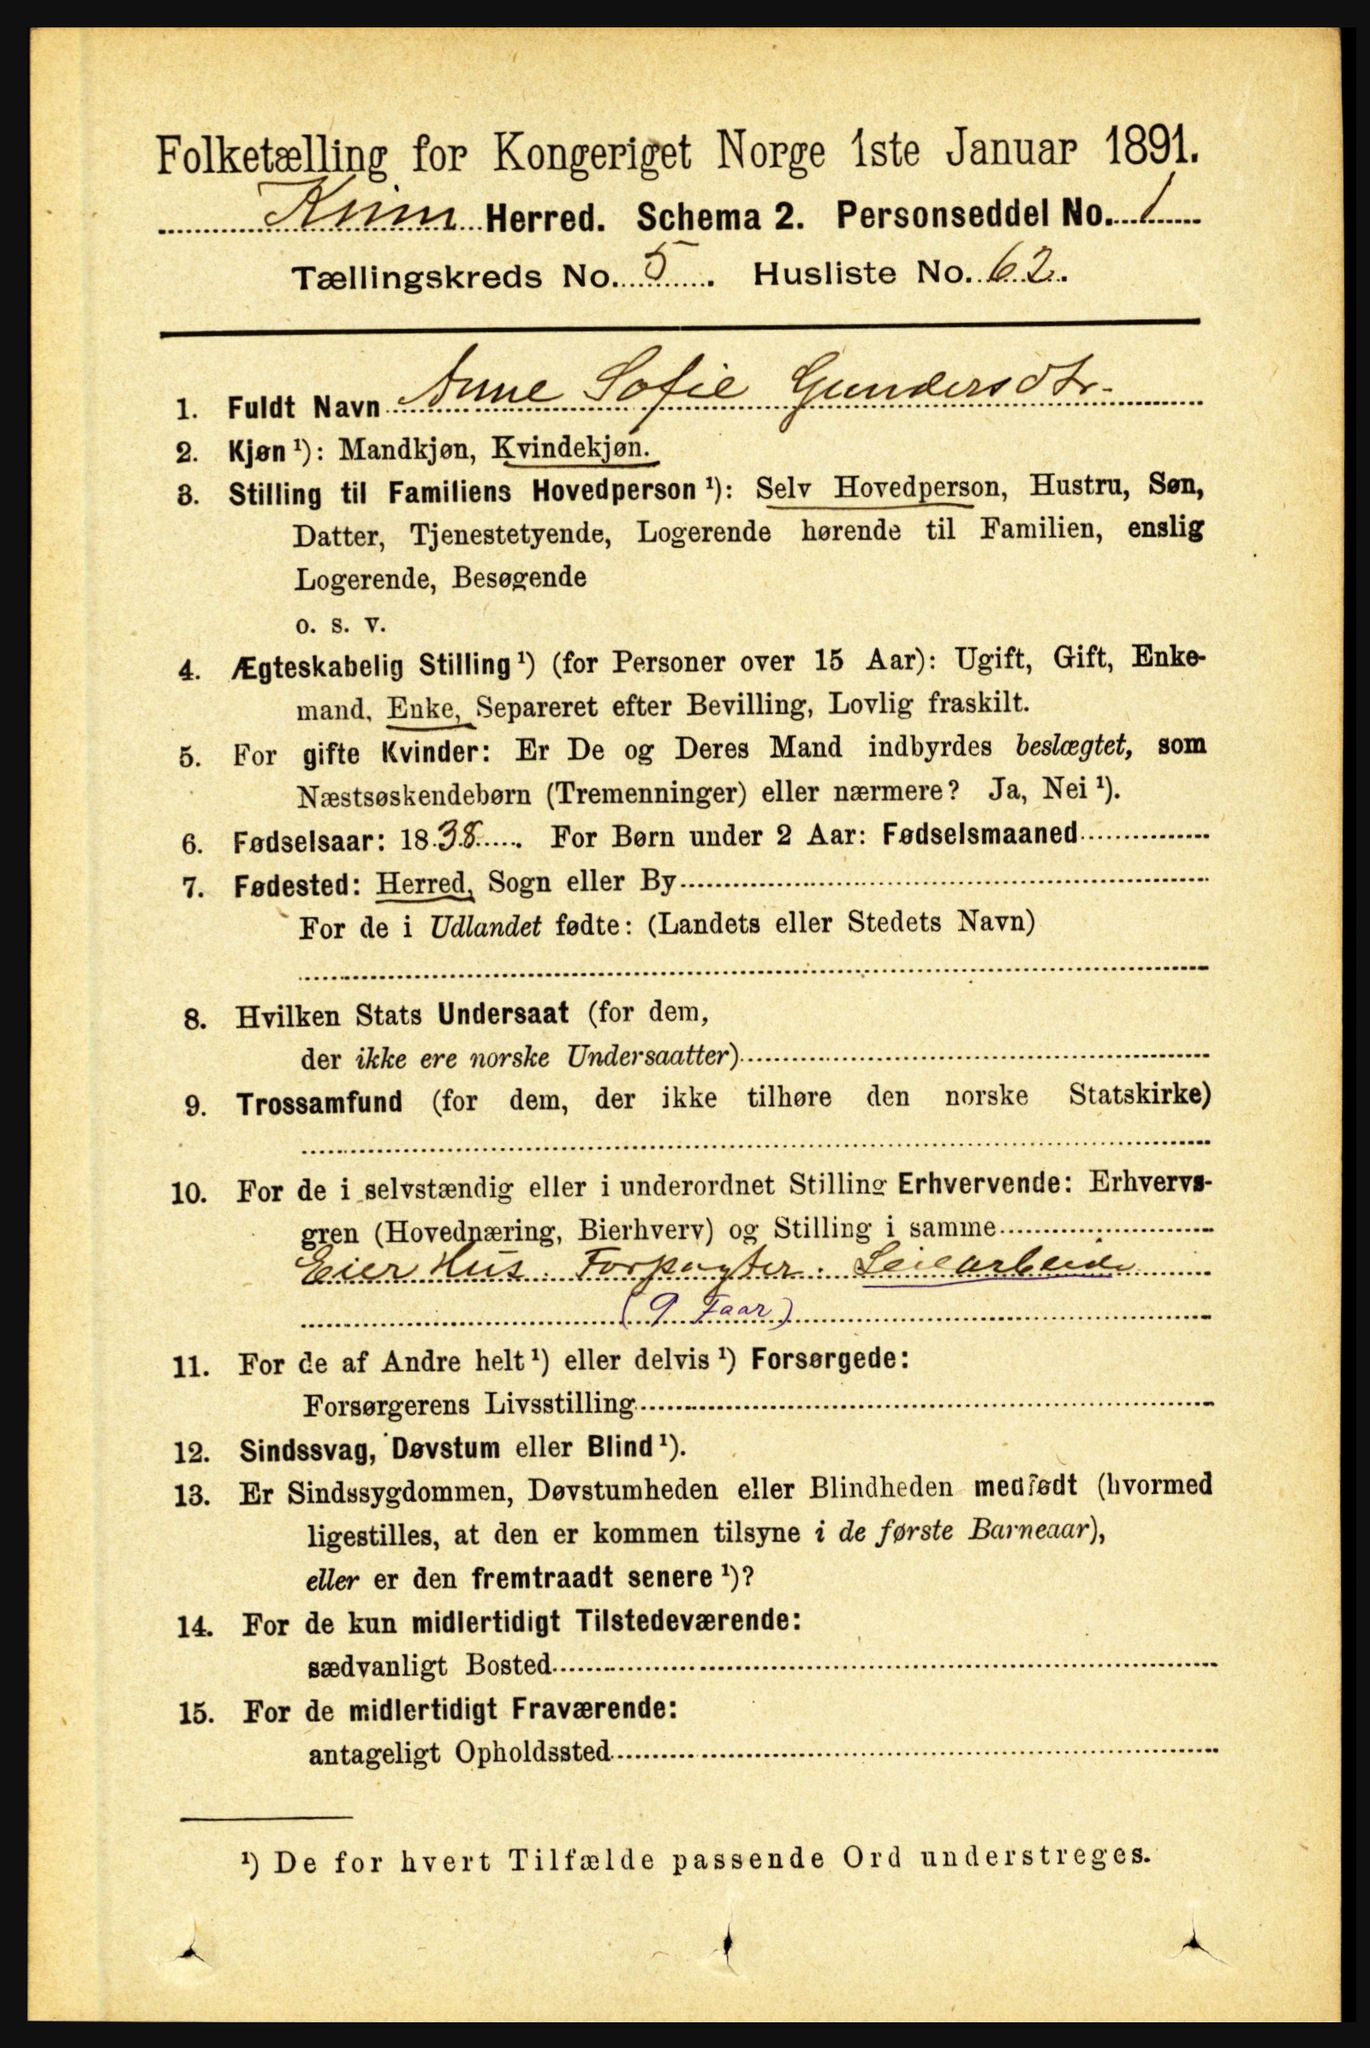 Folketælling for Kongeriget Norge 1ste Januar 1891.
Kinn Herred. Schema 2. Personseddel No. 1
Tællingskreds No. 5. Husliste No. 62.
1. Fuldt Navn Anne Sofie Gundersdtr.
2. Kjøn ¹): Mandkjøn, Kvindekjøn.
3. Stilling til Familiens Hovedperson ¹): Selv Hovedperson, Hustru, Søn,
Datter, Tjenestetyende, Logerende hørende til Familien, enslig
Logerende, Besøgende
o. s. v.
4. Ægteskabelig Stilling ¹) (for Personer over 15 Aar): Ugift, Gift, Enke-
mand, Enke, Separeret efter Bevilling, Lovlig fraskilt.
5. For gifte Kvinder: Er De og Deres Mand indbyrdes beslægtet, som
Næstsøskendebørn (Tremenninger) eller nærmere? Ja, Nei ¹).
6. Fødselsaar: 1838. For Børn under 2 Aar: Fødselsmaaned
7. Fødested: Herred, Sogn eller By
For de i Udlandet fødte: (Landets eller Stedets Navn)
8. Hvilken Stats Undersaat (for dem,
der ikke ere norske Undersaatter)
9. Trossamfund (for dem, der ikke tilhøre den norske Statskirke)
10. For de i selvstændig eller i underordnet Stilling Erhvervende: Erhvervs-
gren (Hovednæring, Bierhverv) og Stilling i samme
Eier Hus. Forpagter. Leiearbeide
(9 Faar)
11. For de af Andre helt ¹) eller delvis ¹) Forsørgede:
Forsørgerens Livsstilling
12. Sindssvag, Døvstum eller Blind ¹).
13. Er Sindssygdommen, Døvstumheden eller Blindheden medfødt (hvormed
ligestilles, at den er kommen tilsyne i de første Barneaar),
eller er den fremtraadt senere ¹)?
14. For de kun midlertidigt Tilstedeværende:
sædvanligt Bosted
15. For de midlertidigt Fraværende:
antageligt Opholdssted
¹) De for hvert Tilfælde passende Ord understreges.